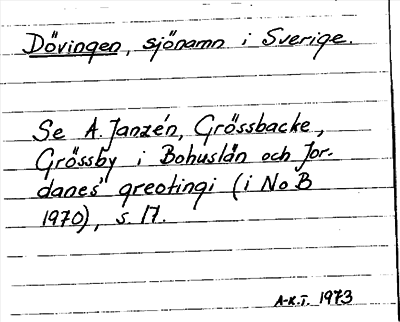 Dövingen, sjönamn i Sverige.
Se A. Janzén, Grössbacke,
Grössby i Bohuslän och Jor-
danes' greotingi (i NoB
1970), s. 17.
A-K.T. 1973